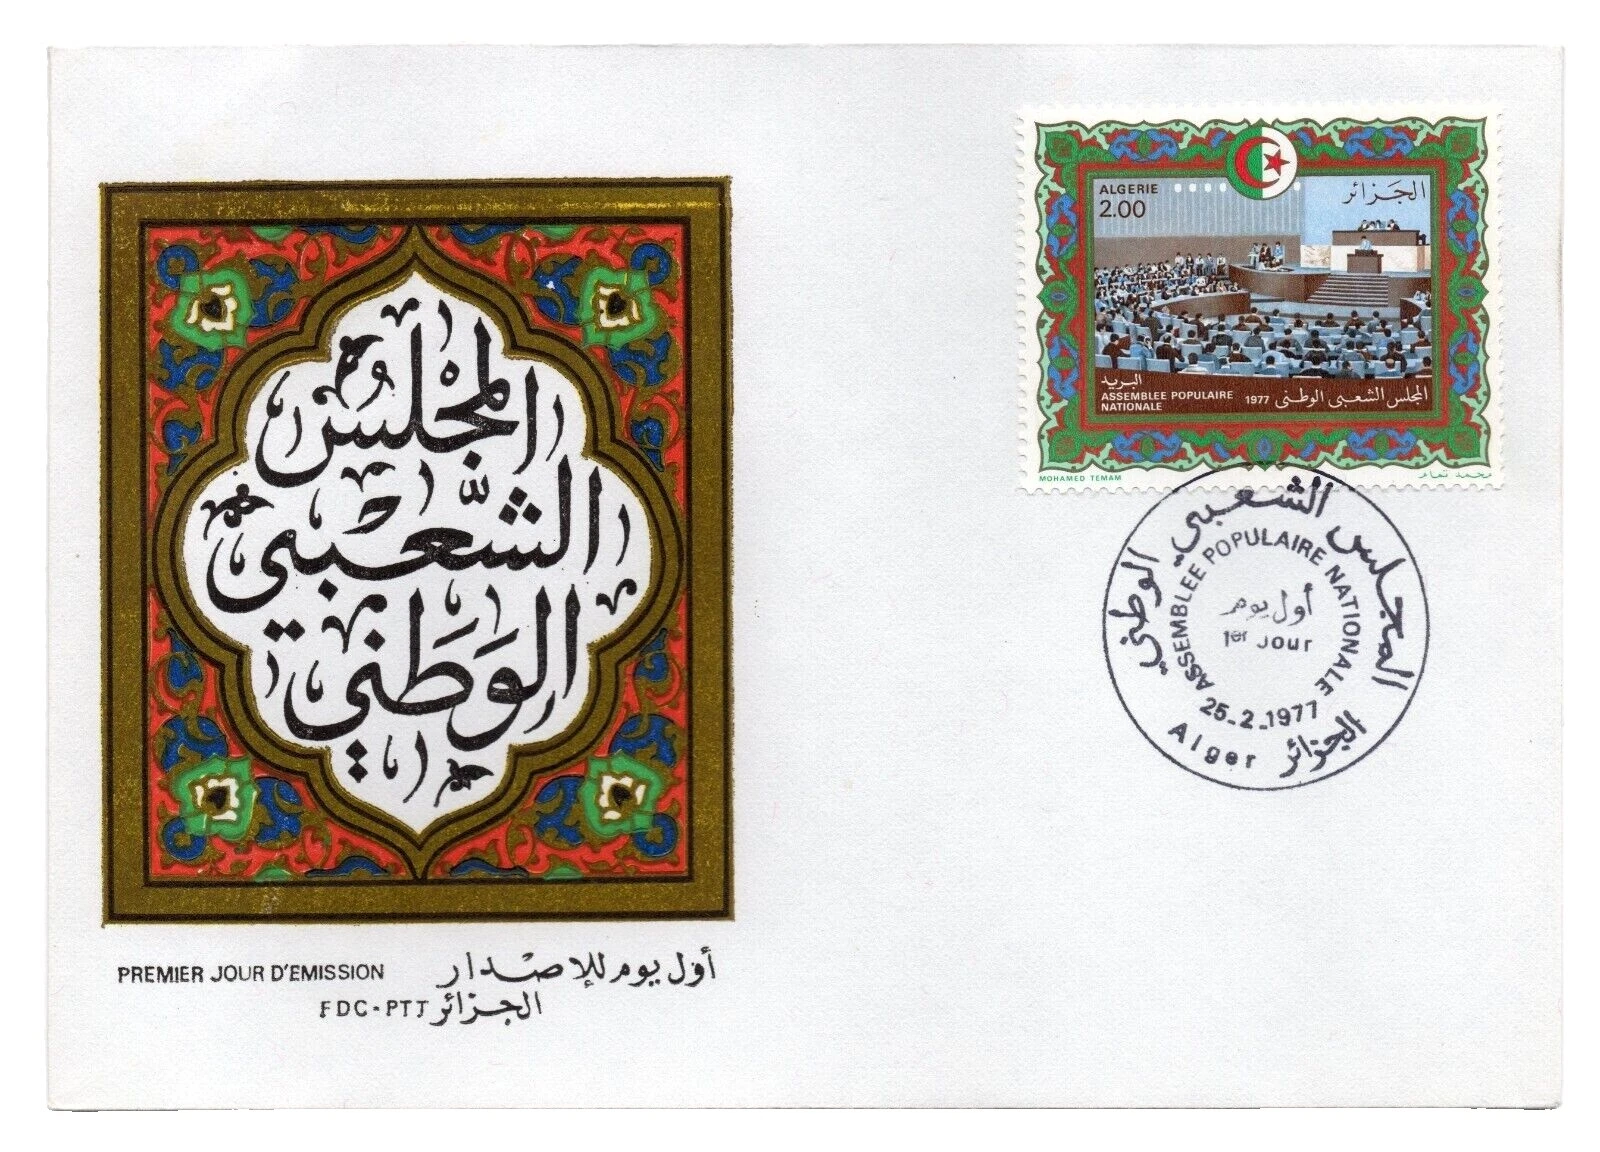 المجلس
الشعبي
الوطني
PREMIER JOUR D'EMISSION أول يوم للإصدار
FDC-PTT الجزائر
ALGERIE الجزائر
2.00
البريد
ASSEMBLEE POPULAIRE
NATIONALE
1977 المجلس الشعبي الوطني
MOHAMED TEMAM محمد تمام
المجلس الشعبي الوطني
ASSEMBLEE POPULAIRE NATIONALE
أول يوم
1er JOUR
25-2-1977
Alger الجزائر